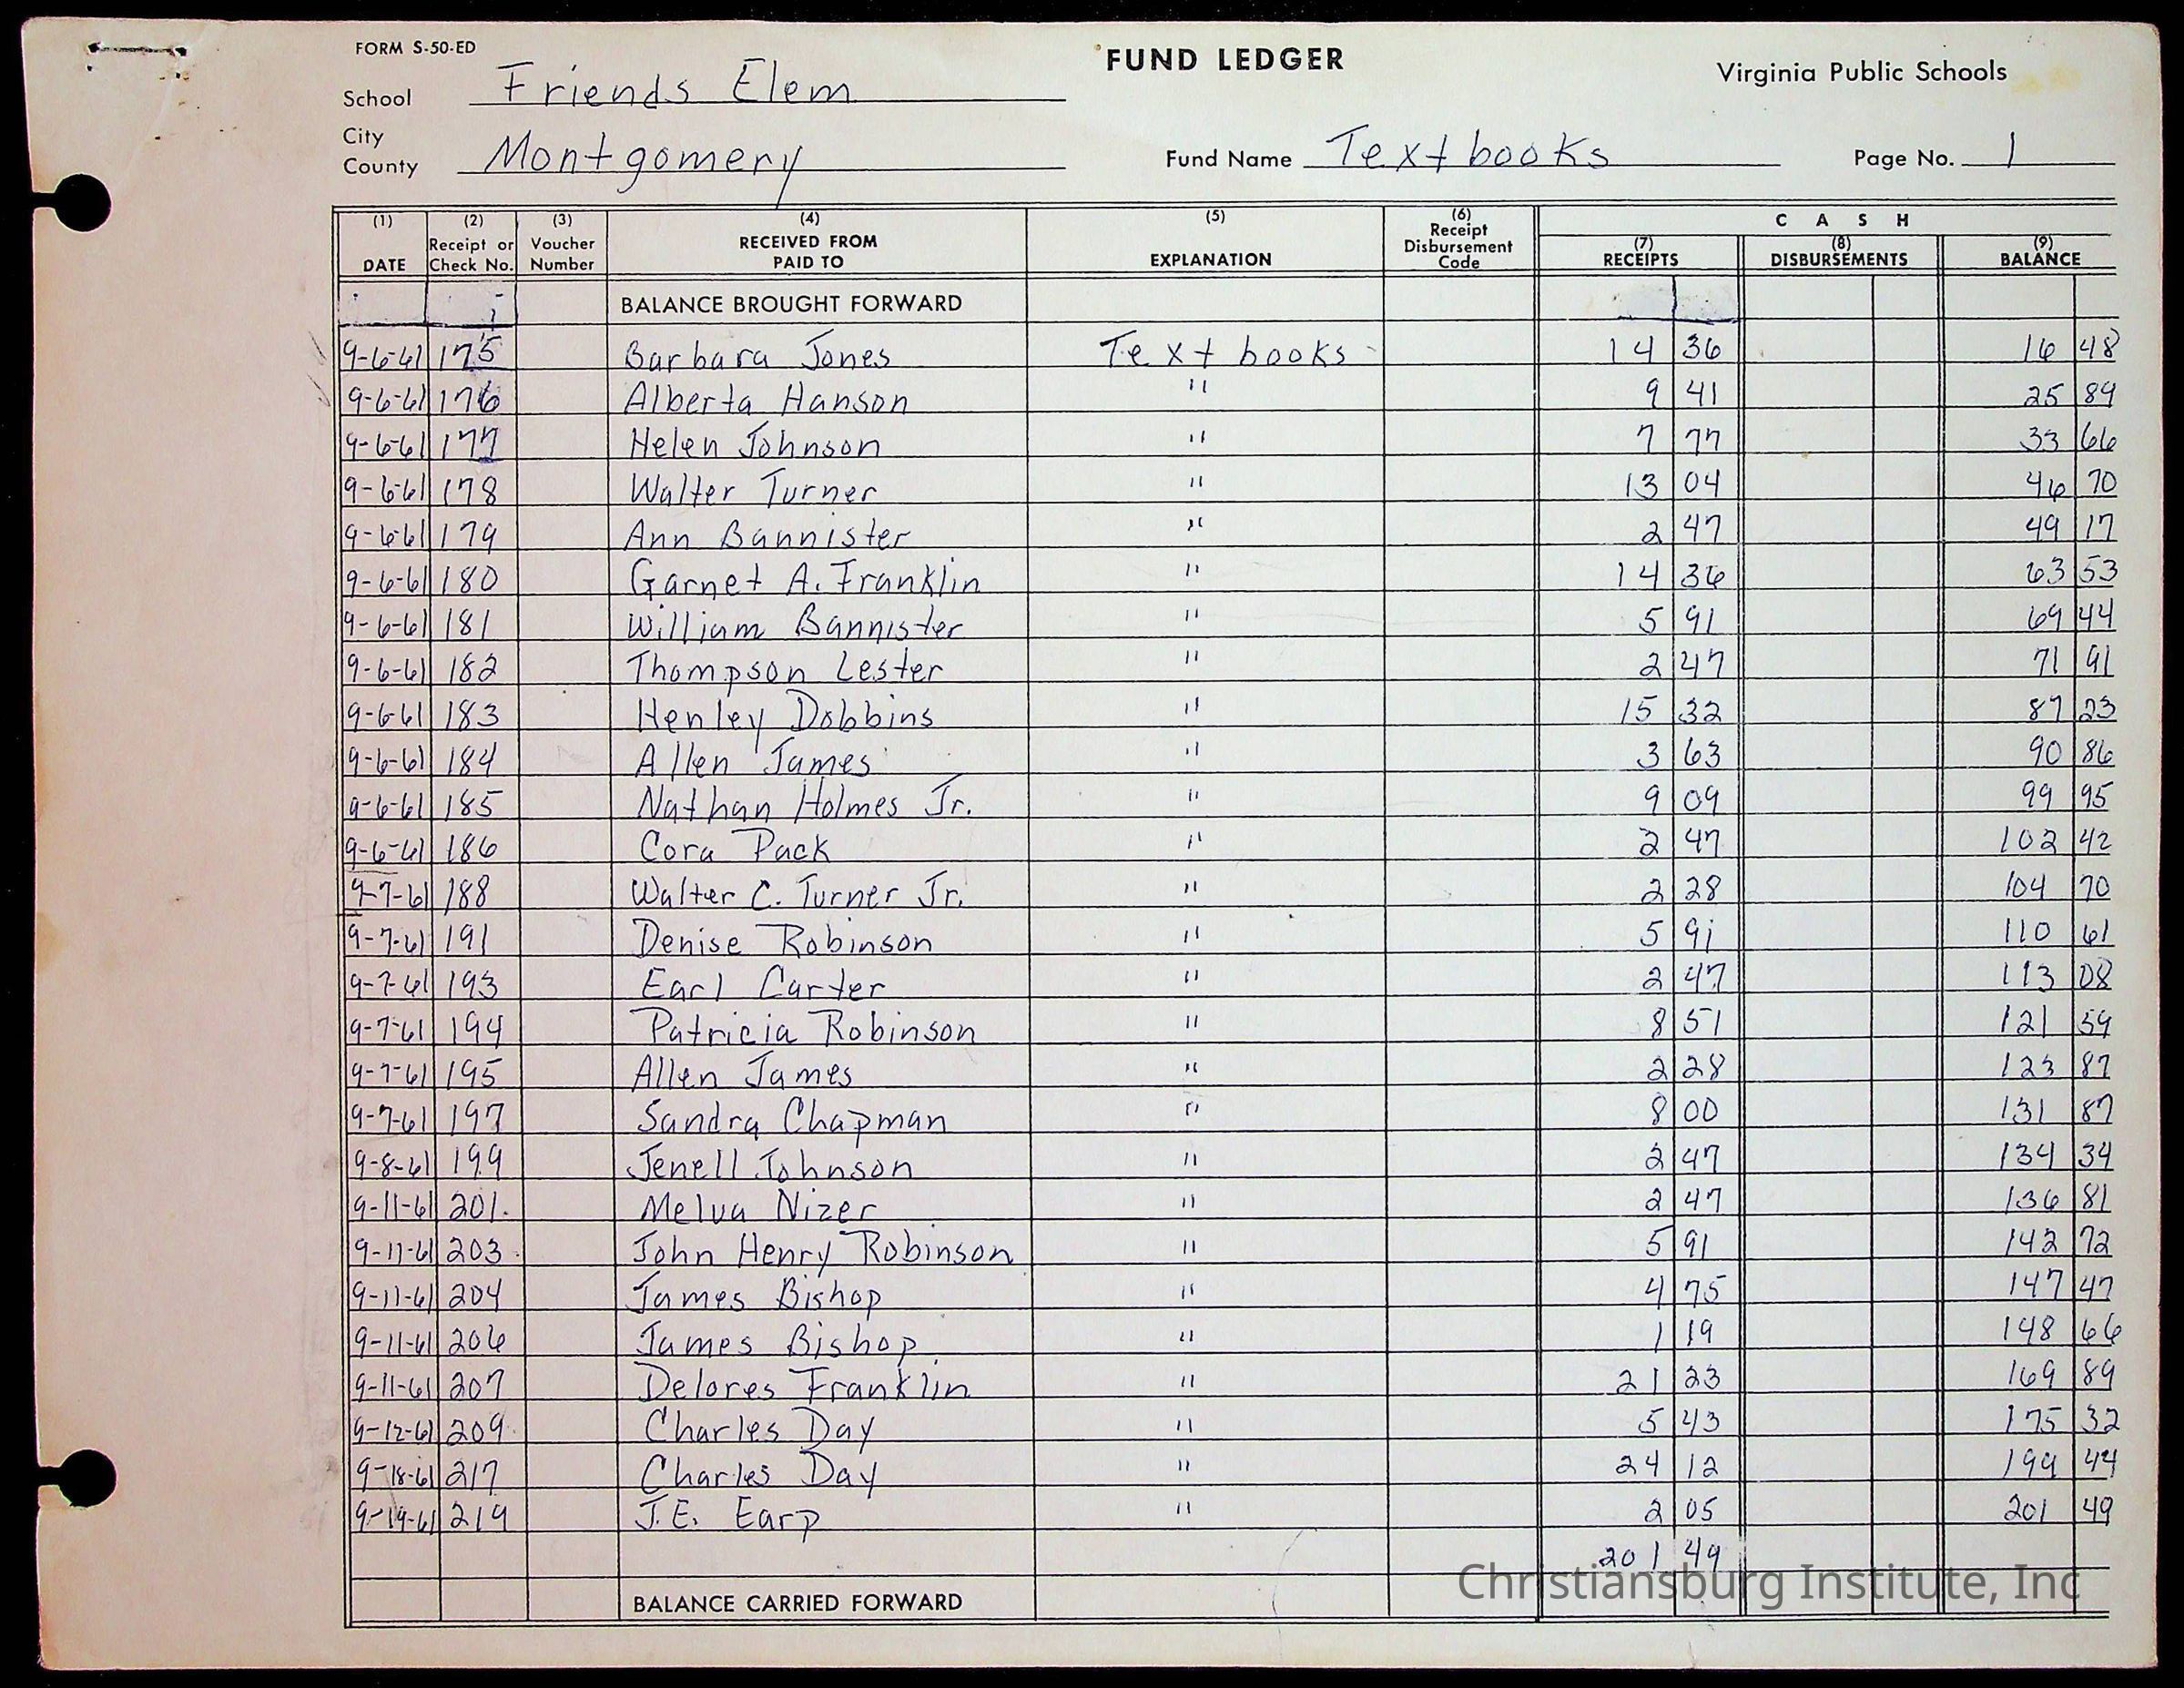 FORM S-50-ED
FUND LEDGER
Virginia Public Schools
School Friends Elem
City
County Montgomery
Fund Name Textbooks
Page No. 1
(1) DATE (2) Receipt or Check No. (3) Voucher Number (4) RECEIVED FROM PAID TO (5) EXPLANATION (6) Receipt Disbursement Code CASH (7) RECEIPTS (8) DISBURSEMENTS (9) BALANCE
BALANCE BROUGHT FORWARD
9-6-61 175 Barbara Jones Textbooks 14 36 16 48
9-6-61 176 Alberta Hanson " 9 41 25 89
9-6-61 177 Helen Johnson " 7 77 33 66
9-6-61 178 Walter Turner " 13 04 46 70
9-6-61 179 Ann Bannister " 2 47 49 17
9-6-61 180 Garnet A. Franklin " 14 36 63 53
9-6-61 181 William Bannister " 5 91 69 44
9-6-61 182 Thompson Lester " 2 47 71 91
9-6-61 183 Henley Dobbins " 15 32 87 23
9-6-61 184 Allen James " 3 63 90 86
9-6-61 185 Nathan Holmes Jr. " 9 09 99 95
9-6-61 186 Cora Pack " 2 47 102 42
9-7-61 188 Walter C. Turner Jr. " 2 28 104 70
9-7-61 191 Denise Robinson " 5 91 110 61
9-7-61 193 Earl Carter " 2 47 113 08
9-7-61 194 Patricia Robinson " 8 51 121 59
9-7-61 195 Allen James " 2 28 123 87
9-7-61 197 Sandra Chapman " 8 00 131 87
9-8-61 199 Jenell Johnson " 2 47 134 34
9-11-61 201. Melva Nizer " 2 47 136 81
9-11-61 203 John Henry Robinson " 5 91 142 72
9-11-61 204 James Bishop " 4 75 147 47
9-11-61 206 James Bishop " 1 19 148 66
9-11-61 207 Delores Franklin " 21 23 169 89
9-12-61 209 Charles Day " 5 43 175 32
9-18-61 217 Charles Day " 24 12 199 44
9-19-61 219 J.E. Earp " 2 05 201 49
201 49
BALANCE CARRIED FORWARD
Christiansburg Institute, Inc